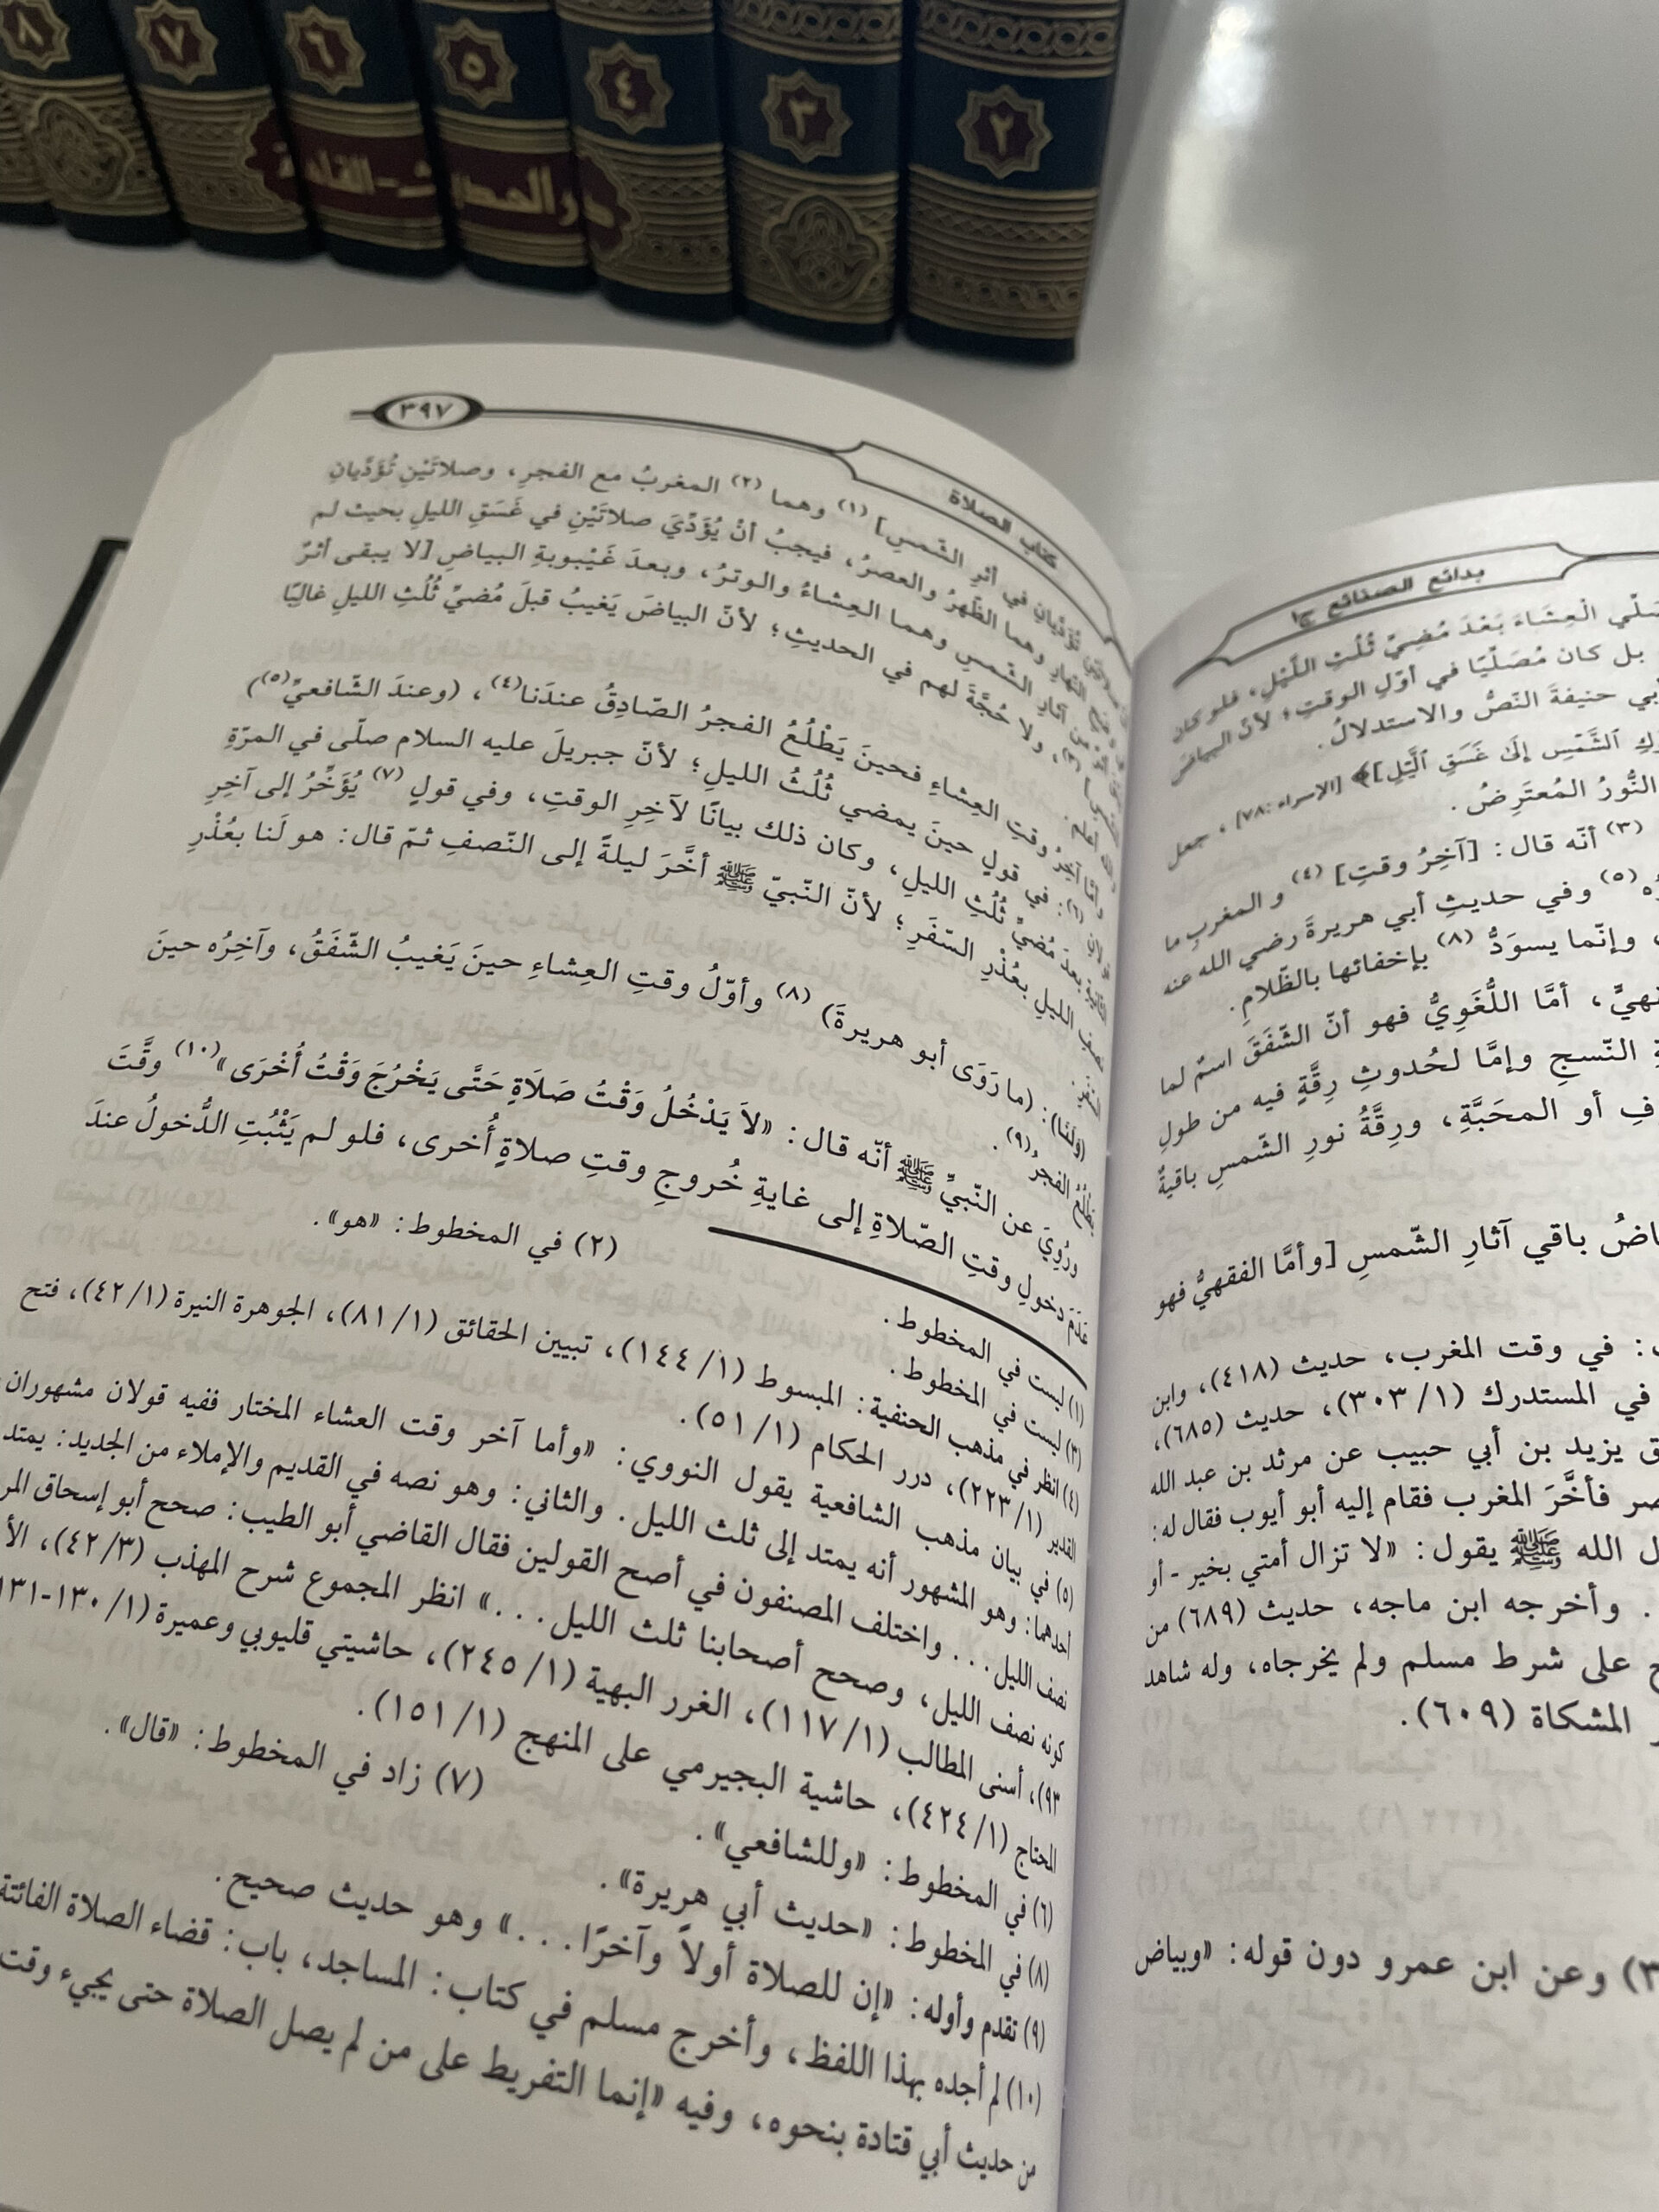 ٨
٧
٦
٥
٤
٣
٢
دار الحديث - القاهرة
بدائع الصنائع ج١
صَلّي الْعِشَاءَ بَعْدَ مُضِيِّ ثُلُثِ اللَّيْلِ، فلو كان
بل كان مُصَلّيًا في أوّلِ الوقتِ؛ لأنّ البياضَ
أبي حنيفةَ النّصُّ والاستدلالُ.
الشَّمْسِ إِلَى غَسَقِ اللَّيْلِ]﴾ [الإسراء: ٧٨]، جعل
النُّورُ المُعتَرِضُ.
(٣) أنّه قال: [آخِرُ وقتِ] (٤) و المغربِ ما
(٥) وفي حديثِ أبي هريرةَ رضي الله عنه
، وإنّما يسوَدُّ (٨) بإخفائها بالظّلامِ.
، أمَّا اللُّغَوِيُّ فهو أنّ الشّفَقَ اسمٌ لما
النّسجِ وإمَّا لحُدوثِ رِقَّةٍ فيه من طولِ
أو المحَبَّةِ، ورِقَّةُ نورِ الشّمسِ باقيةٌ
باقي آثارِ الشّمسِ [وأمَّا الفقهيُّ فهو
: في وقت المغرب، حديث (٤١٨)، وابن
في المستدرك (٣٠٣/١)، حديث (٦٨٥)،
يزيد بن أبي حبيب عن مرثد بن عبد الله
فأخَّرَ المغرب فقام إليه أبو أيوب فقال له:
الله ﷺ يقول: «لا تزال أمتي بخير - أو
. وأخرجه ابن ماجه، حديث (٦٨٩) من
على شرط مسلم ولم يخرجاه، وله شاهد
المشكاة (٦٠٩).
وعن ابن عمرو دون قوله: «وبياض
كتاب الصلاة
٣٩٧
في أثرِ الشّمسِ] (١) وهما (٢) المغربُ مع الفجرِ، وصلاتَيْنِ تُؤَدَّيانِ
النّهارِ وهما الظّهرُ والعصرُ، فيجبُ أنْ يُؤَدِّيَ صلاتَيْنِ في غَسَقِ الليلِ بحيث لم
من آثارِ الشّمسِ وهما العِشاءُ والوترُ، وبعدَ غَيْبوبةِ البياضِ [لا يبقى أثرٌ
(٣)، ولا حُجَّةَ لهم في الحديثِ؛ لأنّ البياضَ يَغيبُ قبلَ مُضيِّ ثُلُثِ الليلِ غالبًا
أعلم.
وأمّا آخِرُ وقتِ العِشاءِ فحينَ يَطْلُعُ الفجرُ الصّادِقُ عندَنا(٤)، (وعندَ الشّافعيِّ(٥))
(٦): في قولٍ حينَ يمضي ثُلُثُ الليلِ؛ لأنّ جبريلَ عليه السلام صلّى في المرّةِ
الثّانيةِ بعدَ مُضيِّ ثُلُثِ الليلِ، وكان ذلك بيانًا لآخِرِ الوقتِ، وفي قولٍ (٧) يُؤَخِّرُ إلى آخِرِ
نصفِ الليلِ بعُذْرِ السّفَرِ؛ لأنّ النّبيّ ﷺ أخَّرَ ليلةً إلى النّصفِ ثمّ قال: هو لَنا بعُذْرِ
السّفَرِ.
(ولَنا): (ما رَوَى أبو هريرةَ) (٨) وأوّلُ وقتِ العِشاءِ حينَ يَغيبُ الشّفَقُ، وآخِرُه حينَ
يَطْلُعُ الفجرُ(٩).
ورُوِيَ عن النّبيِّ ﷺ أنّه قال: «لاَ يَدْخُلُ وَقْتُ صَلاَةٍ حَتَّى يَخْرُجَ وَقْتُ أُخْرَى»(١٠) وقَّتَ
عَدَمَ دخولِ وقتِ الصّلاةِ إلى غايةِ خُروجِ وقتِ صلاةٍ أُخرى، فلو لم يَثْبُتِ الدُّخولُ عندَ
(١) ليست في المخطوط.
(٢) في المخطوط: «هو».
(٣) ليست في المخطوط.
(٤) انظر في مذهب الحنفية: المبسوط (١٤٤/١)، تبيين الحقائق (٨١/١)، الجوهرة النيرة (٤٢/١)، فتح
القدير (٢٢٣/١)، درر الحكام (٥١/١).
(٥) في بيان مذهب الشافعية يقول النووي: «وأما آخر وقت العشاء المختار ففيه قولان مشهوران
أحدهما: وهو المشهور أنه يمتد إلى ثلث الليل. والثاني: وهو نصه في القديم والإملاء من الجديد: يمتد
نصف الليل... واختلف المصنفون في أصح القولين فقال القاضي أبو الطيب: صحح أبو إسحاق المر
كونه نصف الليل، وصحح أصحابنا ثلث الليل...» انظر المجموع شرح المهذب (٤٢/٣)، الأ
٩٣)، أسنى المطالب (١١٧/١)، الغرر البهية (٢٤٥/١)، حاشيتي قليوبي وعميرة (١٣٠/١-١٣١
المحتاج (٤٢٤/١)، حاشية البجيرمي على المنهج (١٥١/١).
(٦) في المخطوط: «وللشافعي».
(٧) زاد في المخطوط: «قال».
(٨) في المخطوط: «حديث أبي هريرة».
(٩) تقدم وأوله: «إن للصلاة أولاً وآخرًا...» وهو حديث صحيح.
(١٠) لم أجده بهذا اللفظ، وأخرج مسلم في كتاب: المساجد، باب: قضاء الصلاة الفائتة
من حديث أبي قتادة بنحوه، وفيه «إنما التفريط على من لم يصل الصلاة حتى يجيء وقت